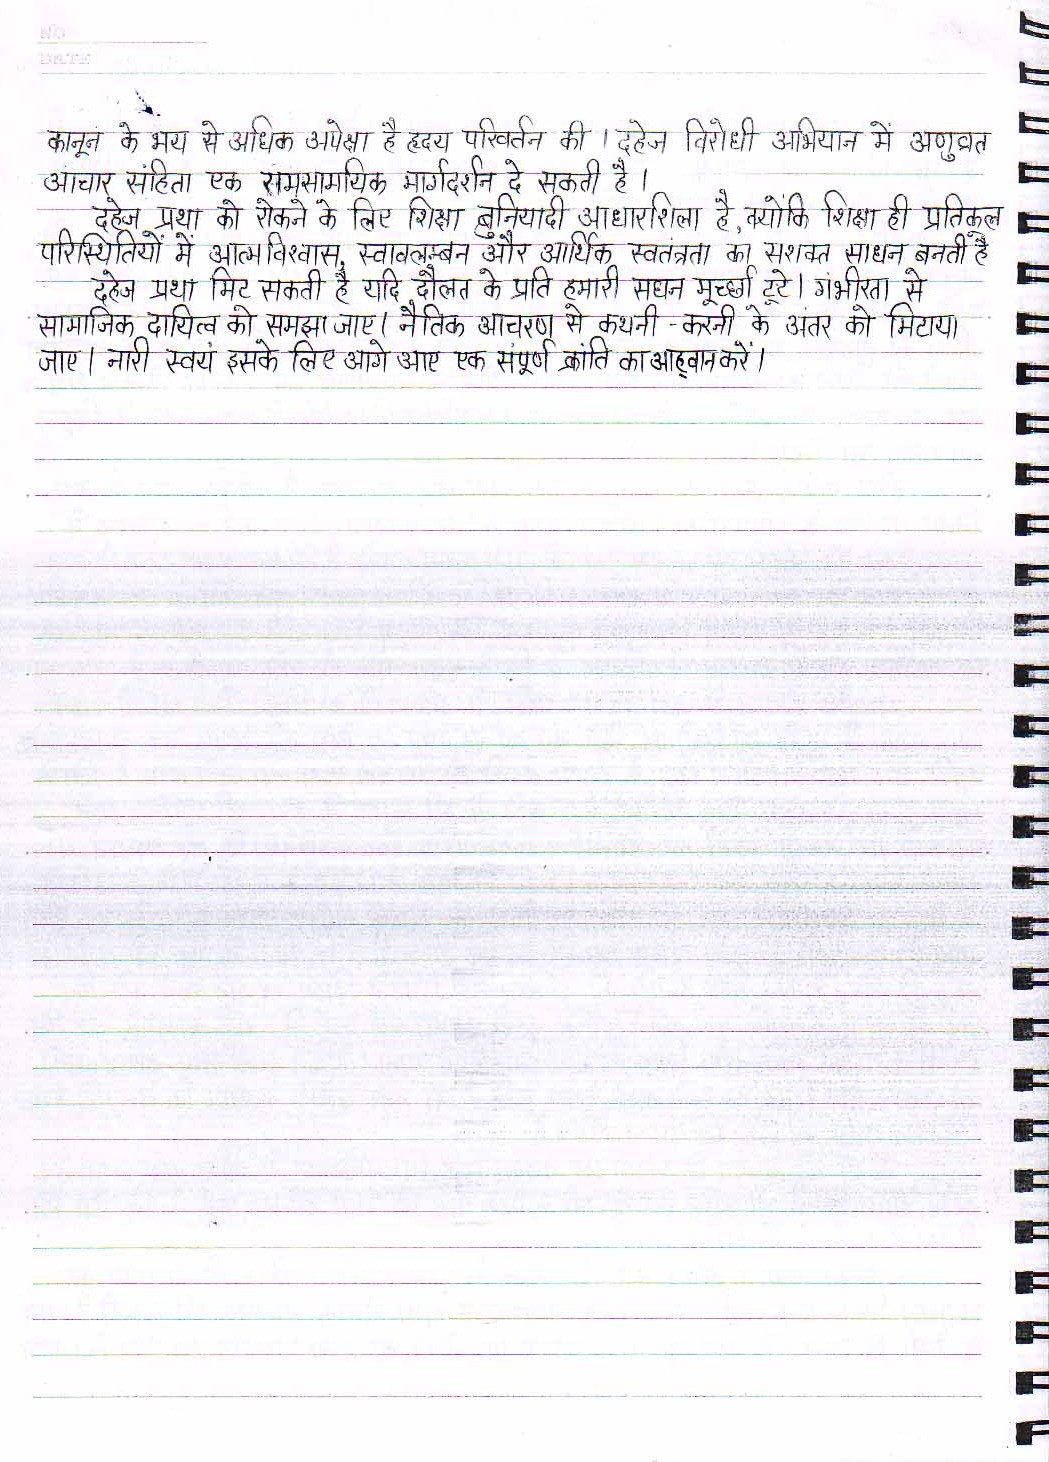 NO
DATE
कानून के भय से अधिक अपेक्षा है हृदय परिवर्तन की । दहेज विरोधी अभियान में अणुव्रत
आचार संहिता एक समसामयिक मार्गदर्शन दे सकती है ।
दहेज प्रथा को रोकने के लिए शिक्षा बुनियादी आधारशिला है, क्योंकि शिक्षा ही प्रतिकूल
परिस्थितियों में आत्मविश्वास, स्वावलम्बन और आर्थिक स्वतंत्रता का सशक्त साधन बनती है
दहेज प्रथा मिट सकती है यदि दौलत के प्रति हमारी सघन मूर्च्छा टूटे । गंभीरता से
सामाजिक दायित्व को समझा जाए । नैतिक आचरण से कथनी - करनी के अंतर को मिटाया
जाए । नारी स्वयं इसके लिए आगे आए एक संपूर्ण क्रांति का आह्वान करें ।